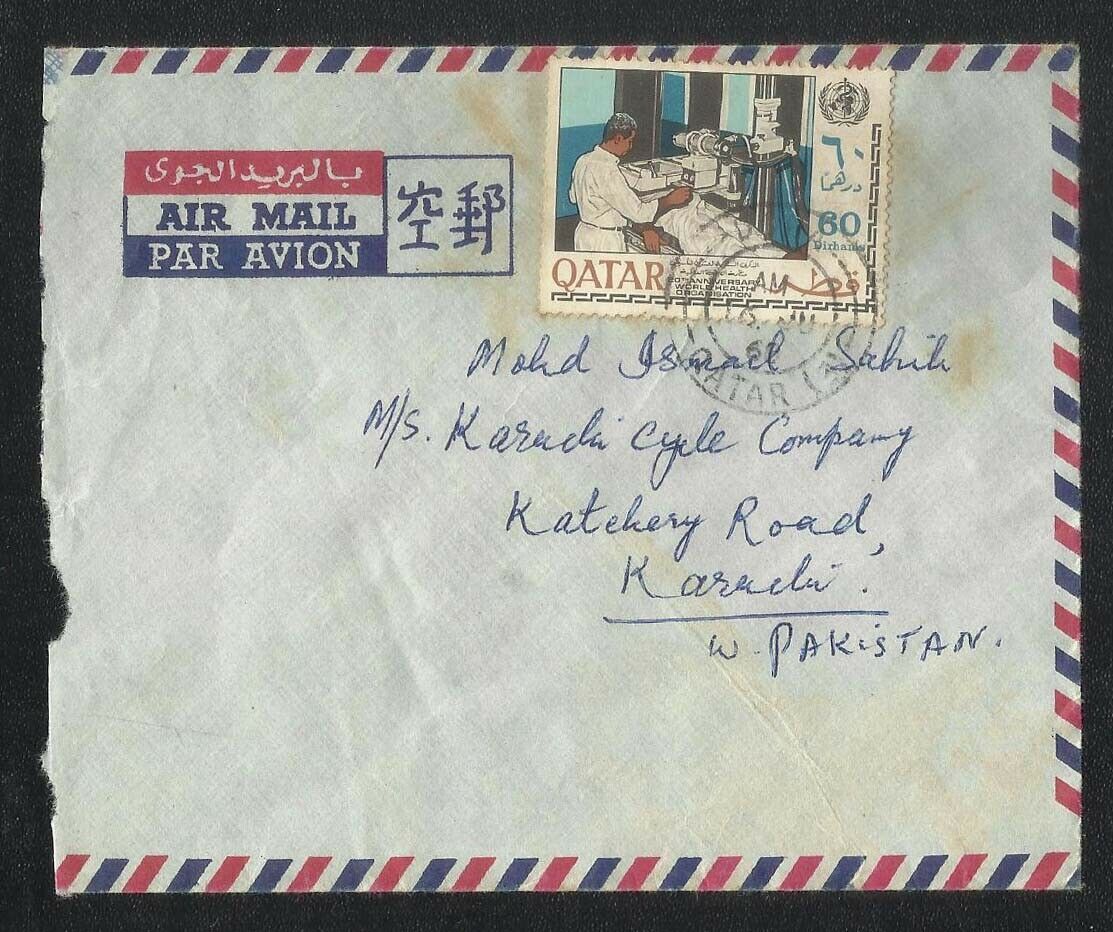 بالبريد الجوى
AIR MAIL
PAR AVION
空郵
٦٠
درهمًا
60
Dirhams
QATAR
20TH ANNIVERSARY
WORLD HEALTH
ORGANISATION
قطر
AM
QATAR
Mohd Ismail Sahib
M/s. Karachi Cycle Company
Katchery Road,
Karachi.
W. PAKISTAN.